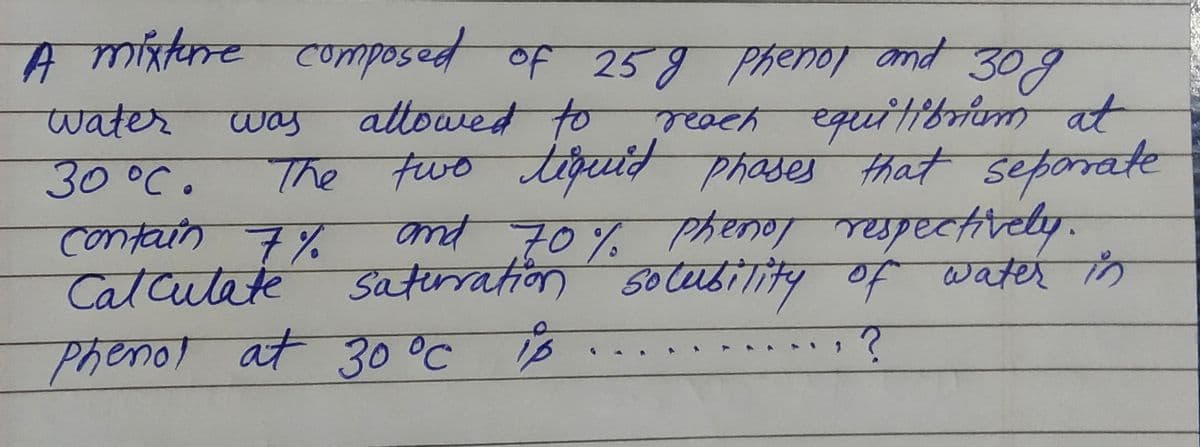 A mixture composed of 25 g phenol and 30 g
water was allowed to reach equilibrium at
30 °C. The two liquid phases that separate
contain 7% and 70% phenol respectively.
Calculate saturation solubility of water in
phenol at 30 °C is ............?